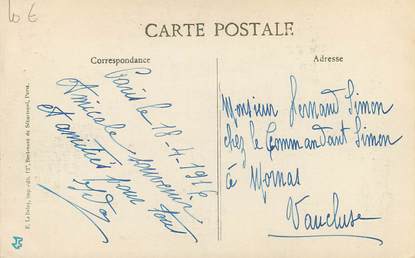 10 €
CARTE POSTALE
Correspondance
Adresse
Paris le 18-4-1916
Amicale souvenir
et amitiés pour tout
Monsieur Fernand Simon
chez le Commandant Simon
à Mornas
Vaucluse
E. Le Deley, imp.-édit., 127, Boulevard de Sébastopol, Paris.